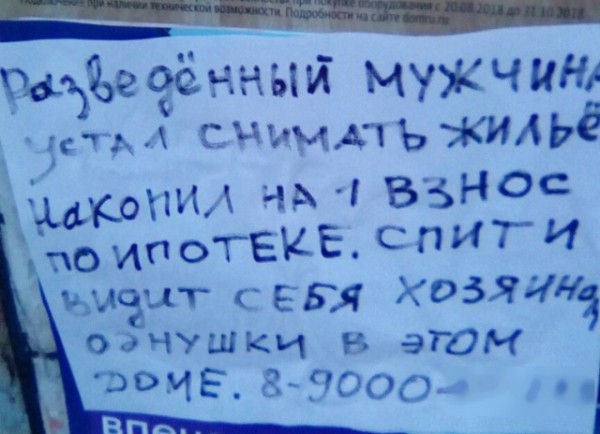 подключение при наличии технической возможности. Подробности на сайте domru.ru
при покупке оборудования с 20.08.2018 до 31.10.2018
Разведённый мужчина
устал снимать жильё
накопил на 1 взнос
по ипотеке. спит и
видит себя хозяином
однушки в этом
доме. 8-9000-